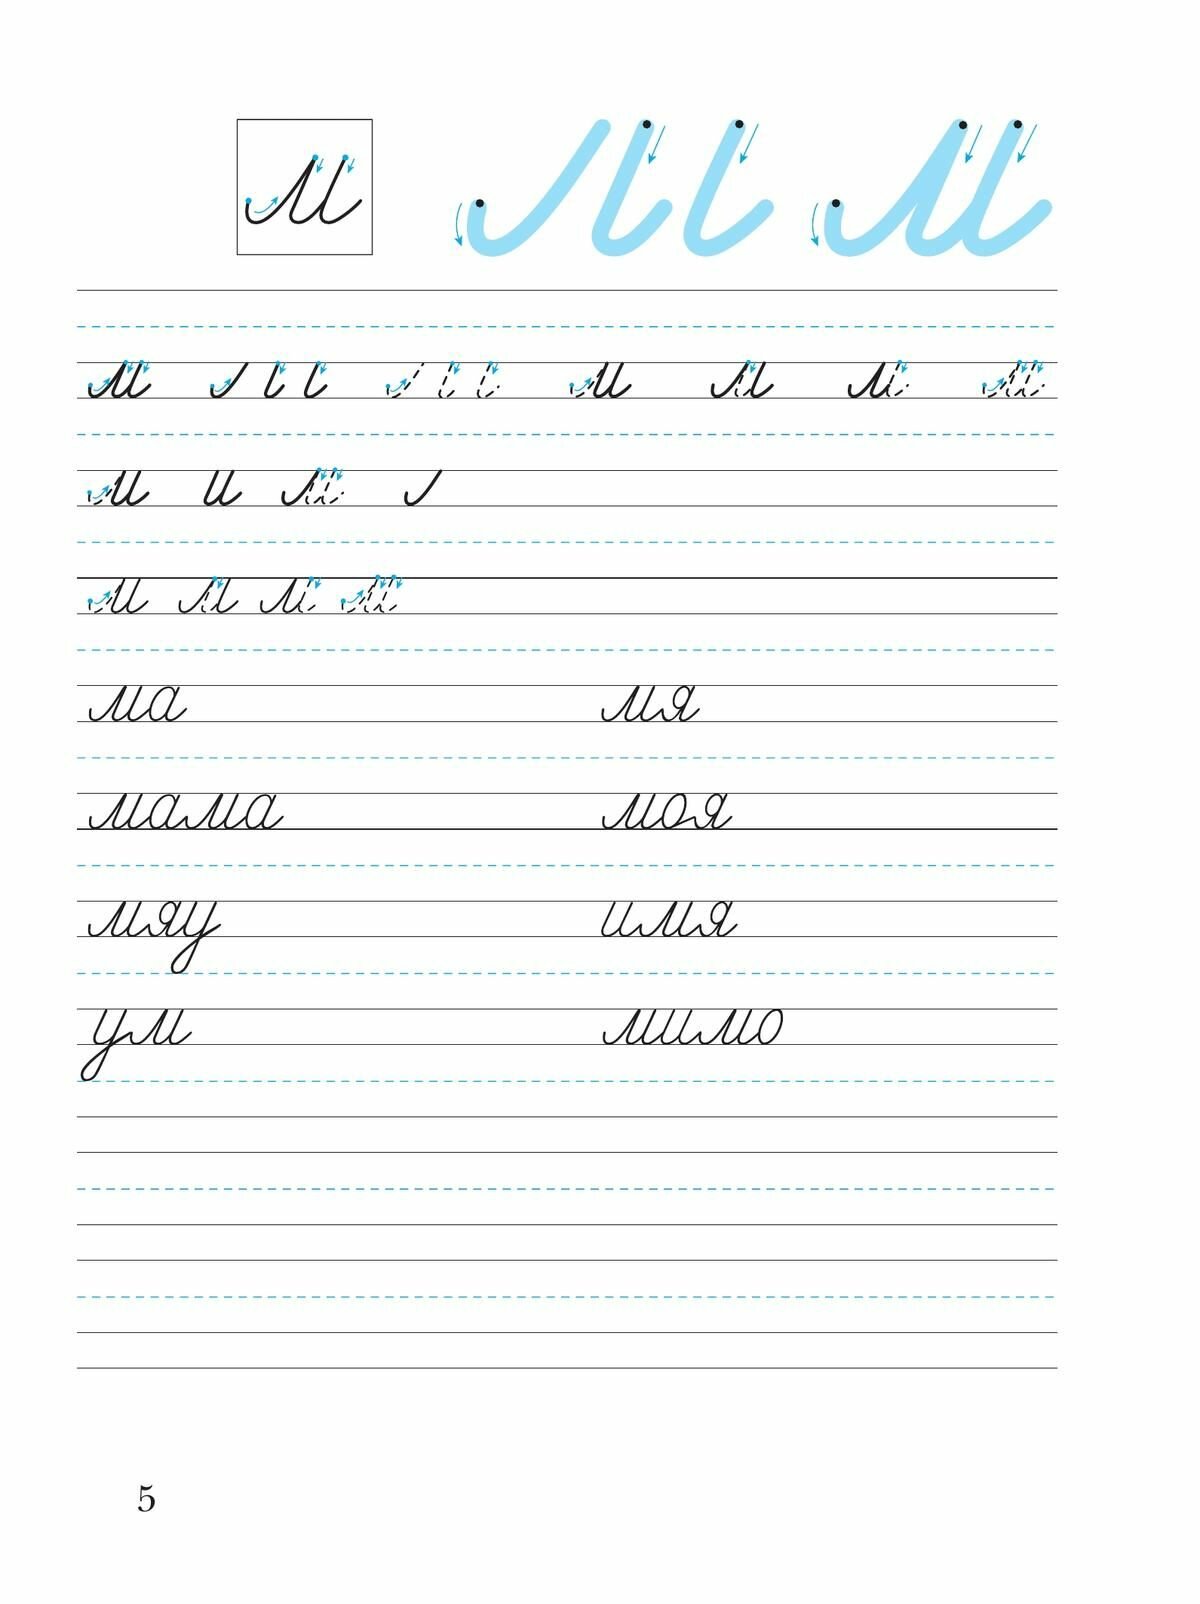 м
м
м м м м м
м и м
м м м м
ма мя
мама моя
мяу имя
ум мимо
5